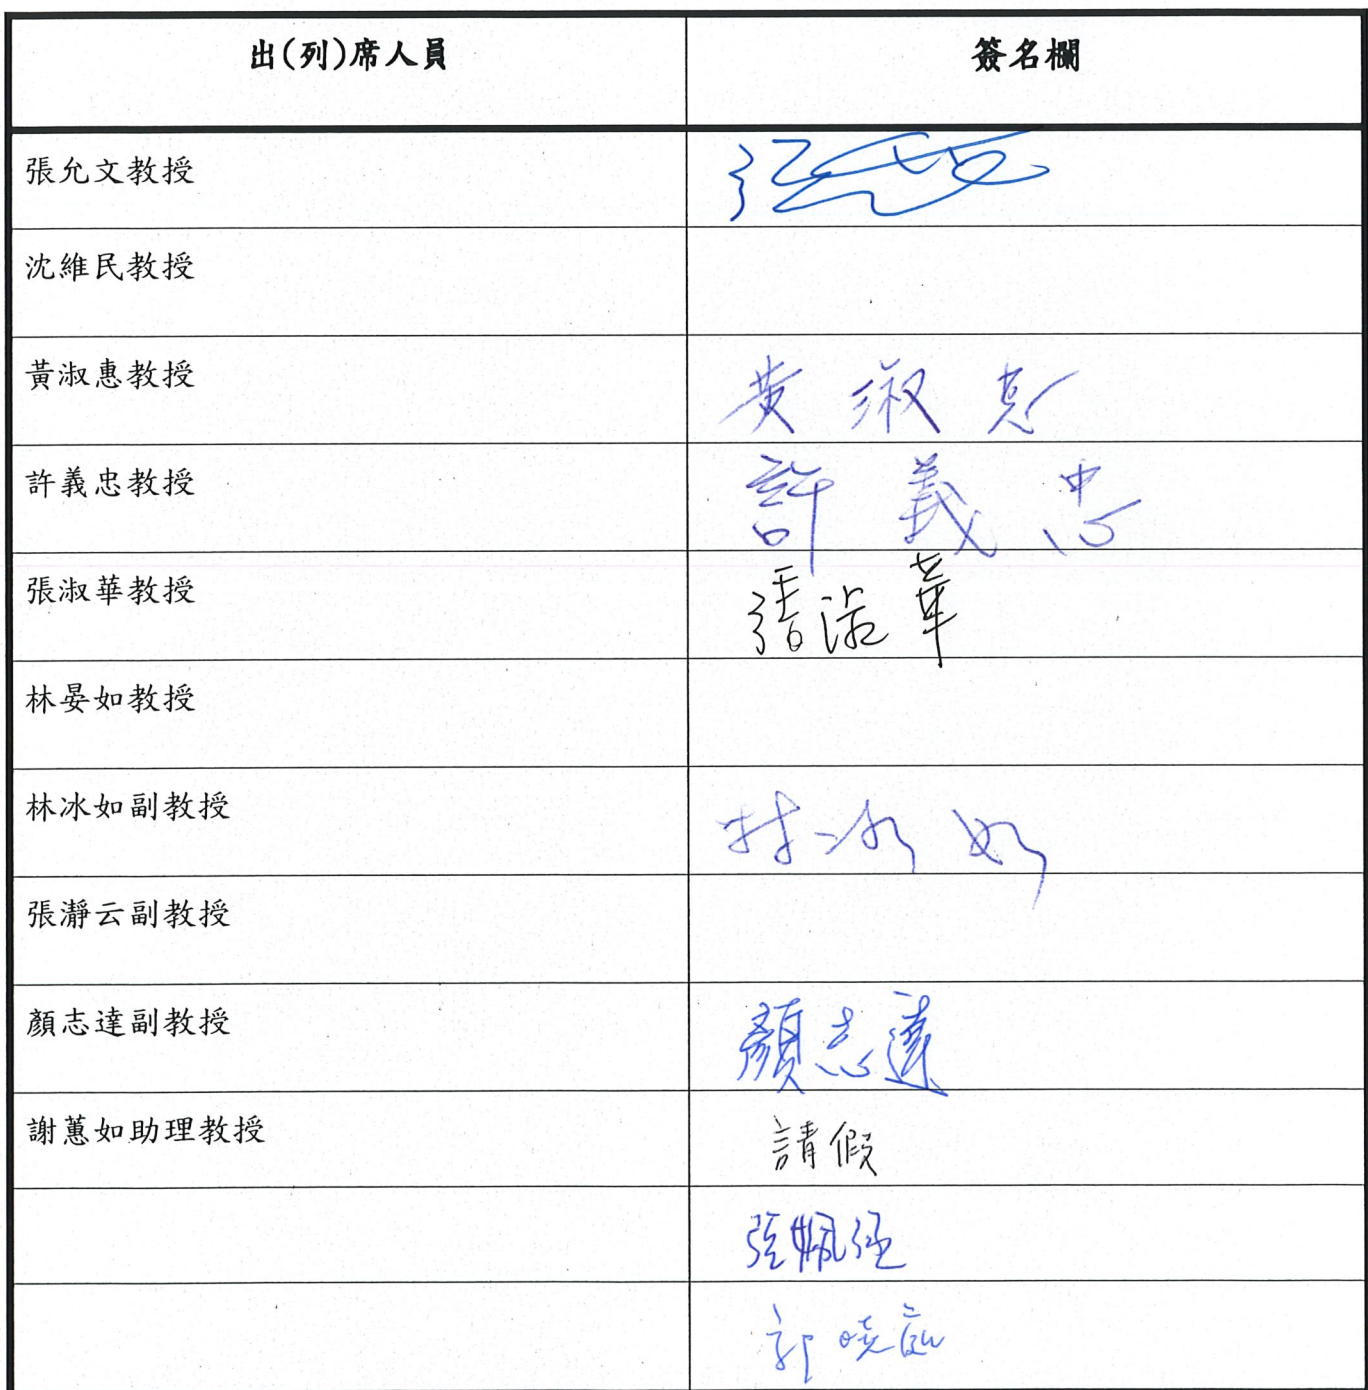 出(列)席人員 簽名欄
張允文教授 張允文
沈維民教授
黃淑惠教授 黃淑惠
許義忠教授 許義忠
張淑華教授 張淑華
林晏如教授
林冰如副教授 林冰如
張瀞云副教授
顏志達副教授 顏志達
謝蕙如助理教授 請假
張
郭曉